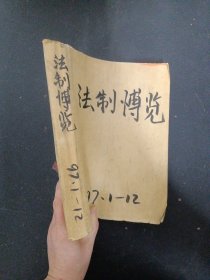 法制博览
97·1-12
法制博览
97.1-12